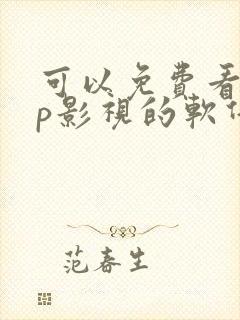 可以免費看
p影視的軟
范春生